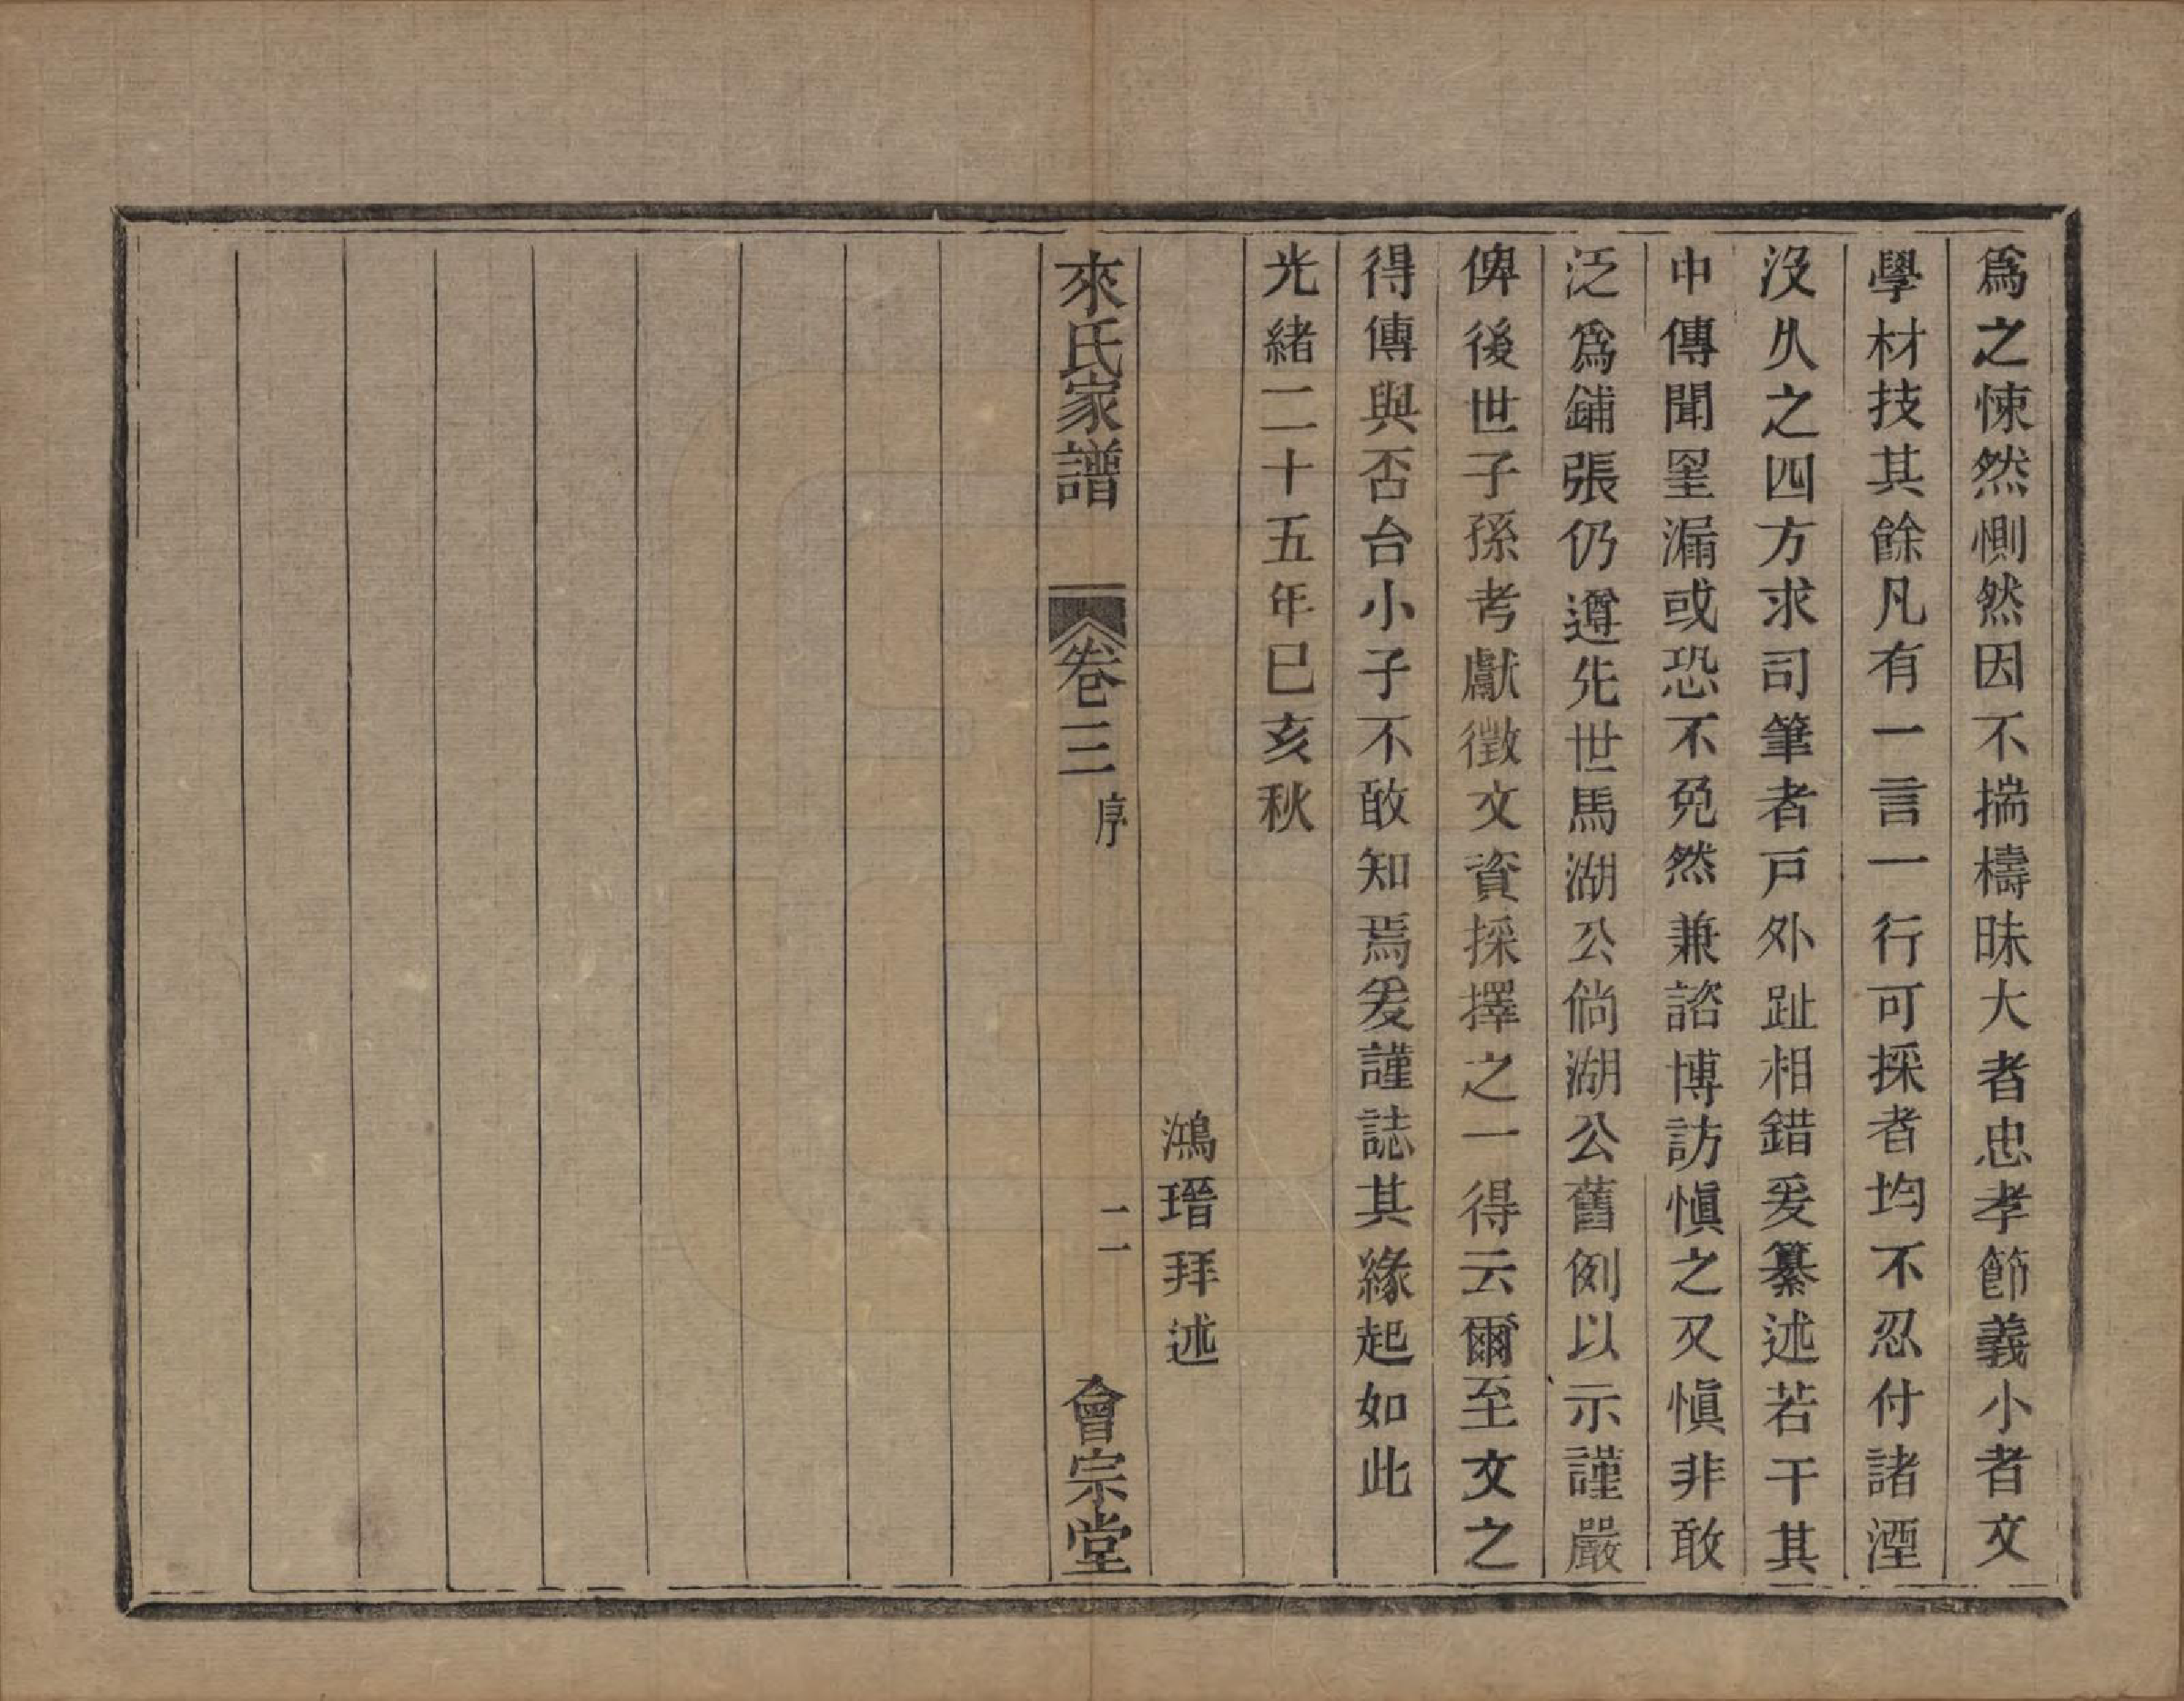 爲之悚然惻然因不揣檮昧大者忠孝節義小者文
學材技其餘凡有一言一行可採者均不忍付諸湮
沒久之四方求司筆者戸外趾相錯爰纂述若干其
中傳聞罣漏或恐不免然兼諮博訪愼之又愼非敢
泛爲鋪張仍遵先世馬湖公倘湖公舊例以示謹嚴
俾後世子孫考獻徵文資採擇之一得云爾至文之
得傳與否台小子不敢知焉爰謹誌其緣起如此
光緒二十五年巳亥秋
鴻瑨拜述
來氏家譜
卷三
序
二
會宗堂